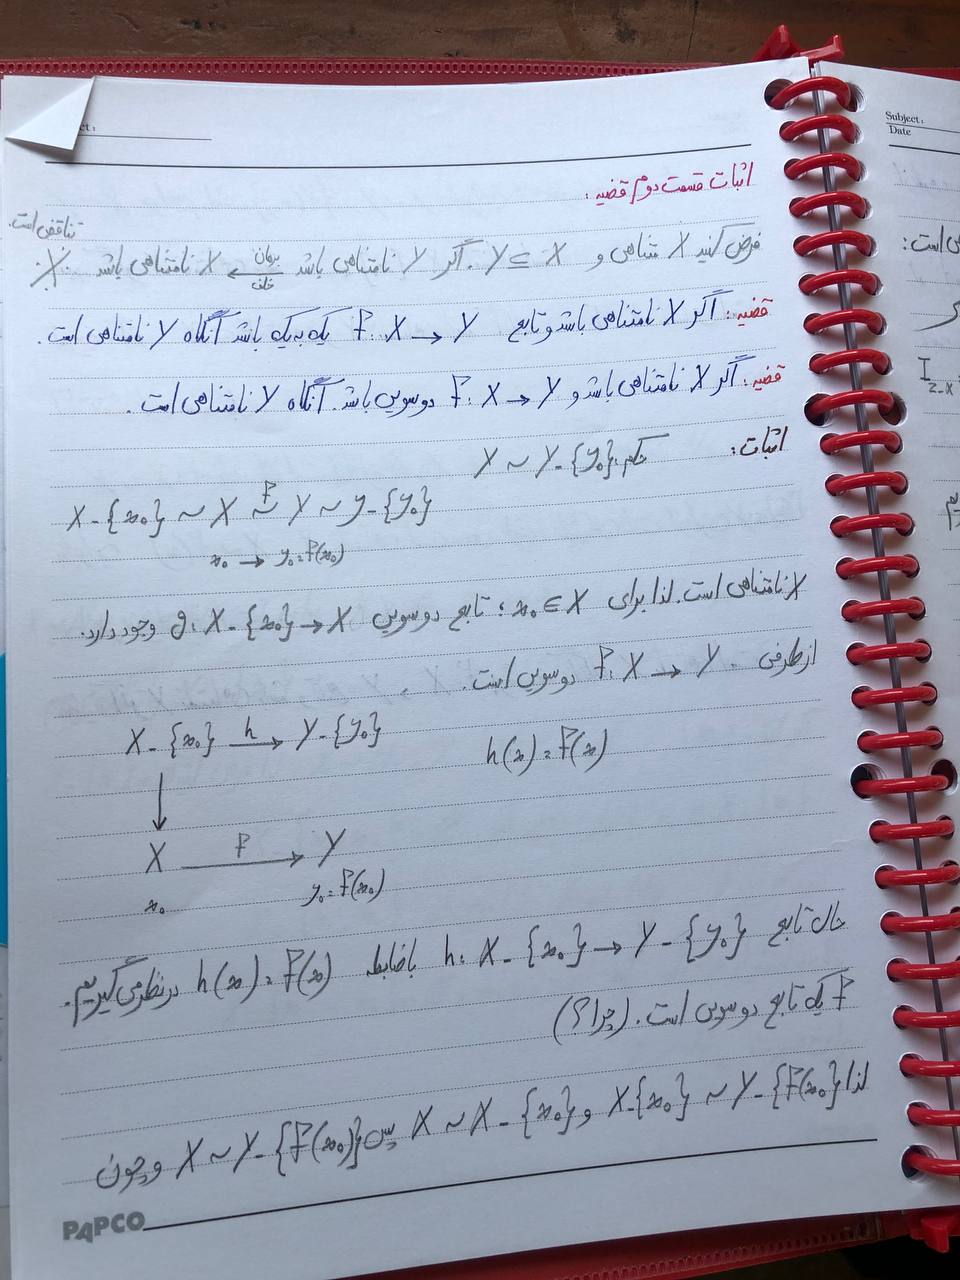 ct:
Subject:
Date
اثبات قسمت دوم قضیه:
تناقض است.
فرض کنید X متناهی و Y ⊆ X. اگر Y نامتناهی باشد ← برهان خلف X نامتناهی باشد
قضیه: اگر X نامتناهی باشد و تابع f: X → Y یک به یک باشد آنگاه Y نامتناهی است.
قضیه: اگر X نامتناهی باشد و f: X → Y دوسویی باشد. آنگاه Y نامتناهی است.
اثبات:
حکم: Y ~ Y-{y₀}
X-{x₀} ~ X ~f Y ~ y-{y₀}
x₀ → y₀=f(x₀)
X نامتناهی است. لذا برای x₀ ∈ X؛ تابع دوسویی g: X-{x₀} → X وجود دارد.
از طرفی f: X → Y دوسویی است.
X-{x₀} h→ Y-{y₀}
h(x)=f(x)
↓
X f→ Y
x₀ y₀=f(x₀)
حال تابع h: X-{x₀} → Y-{y₀} با ضابطه h(x)=f(x) در نظر می‌گیریم.
f یک تابع دوسویی است. (چرا؟)
لذا X-{x₀} ~ Y-{f(x₀)} و X ~ X-{x₀} پس X ~ Y-{f(x₀)} و چون
PAPCO